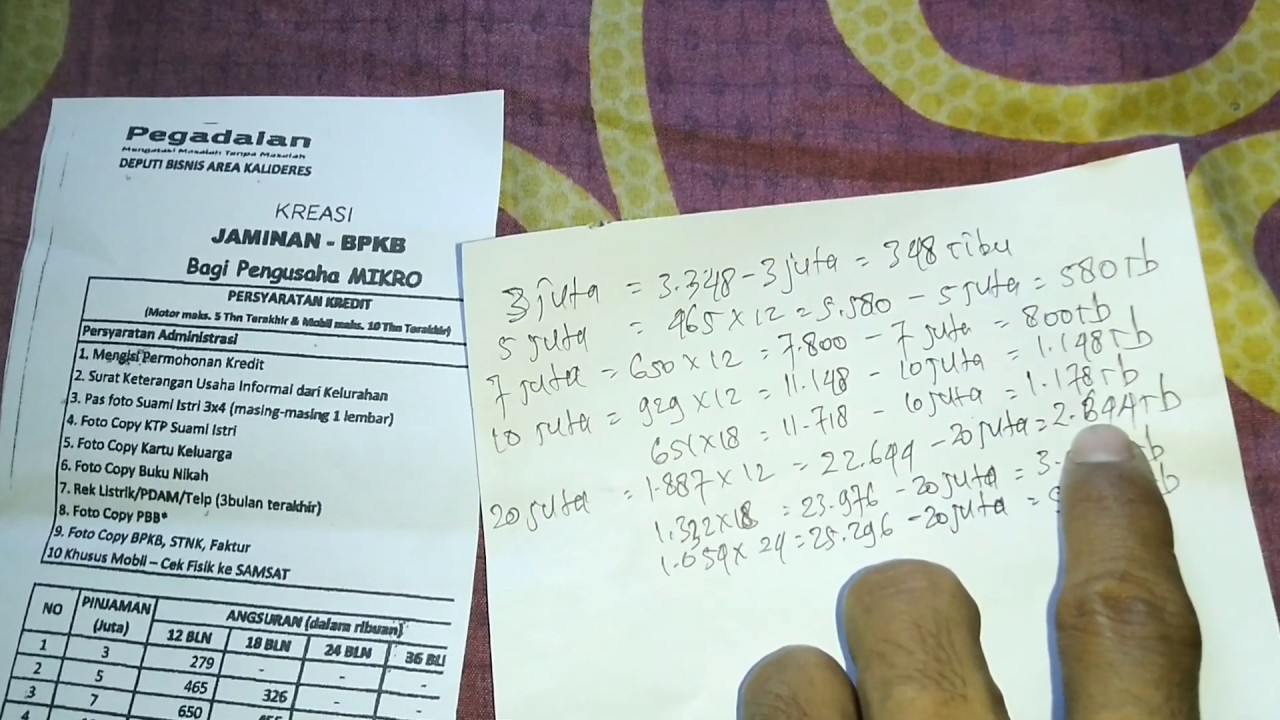 Pegadaian
Mengatasi Masalah Tanpa Masalah
DEPUTI BISNIS AREA KALIDERES
KREASI
JAMINAN - BPKB
Bagi Pengusaha MIKRO
PERSYARATAN KREDIT
(Motor maks. 5 Thn Terakhir & Mobil maks. 10 Thn Terakhir)
Persyaratan Administrasi
1. Mengisi Permohonan Kredit
2. Surat Keterangan Usaha Informal dari Kelurahan
3. Pas foto Suami Istri 3x4 (masing-masing 1 lembar)
4. Foto Copy KTP Suami Istri
5. Foto Copy Kartu Keluarga
6. Foto Copy Buku Nikah
7. Rek Listrik/PDAM/Telp (3bulan terakhir)
8. Foto Copy PBB*
9. Foto Copy BPKB, STNK, Faktur
10 Khusus Mobil – Cek Fisik ke SAMSAT
NO PINJAMAN (Juta) ANGSURAN (dalam ribuan)
12 BLN 18 BLN 24 BLN 36 BL
1 3 279 - - -
2 5 465 326 - -
3 7 650
3 juta = 3.348 - 3 juta = 348 ribu
5 juta = 465 x 12 = 5.580 - 5 juta = 580 rb
7 juta = 650 x 12 = 7.800 - 7 juta = 800 rb
10 juta = 929 x 12 = 11.148 - 10 juta = 1.148 rb
651 x 18 = 11.718 - 10 juta = 1.178 rb
20 juta = 1.887 x 12 = 22.644 - 20 juta = 2.644 rb
1.332 x 18 = 23.976 - 20 juta = 3.
1.054 x 24 = 25.296 - 20 juta =